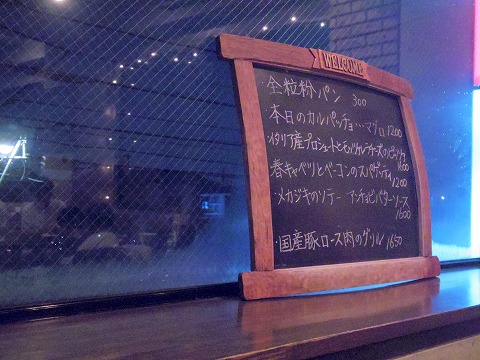 WELCOME
・全粒粉パン 300
・本日のカルパッチョ…マグロ 1200
・イタリア産プロシュートとモッツァレラチーズのピッツァ
1600
春キャベツとベーコンのスパゲッティ
1200
・メカジキのソテー アンチョビバターソース
1600
・国産豚ロース肉のグリル 1650